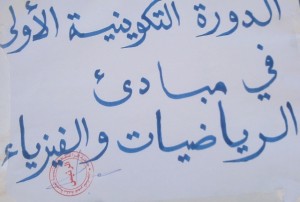 الدورة التكوينية الأولى
في مبادئ
الرياضيات والفيزياء